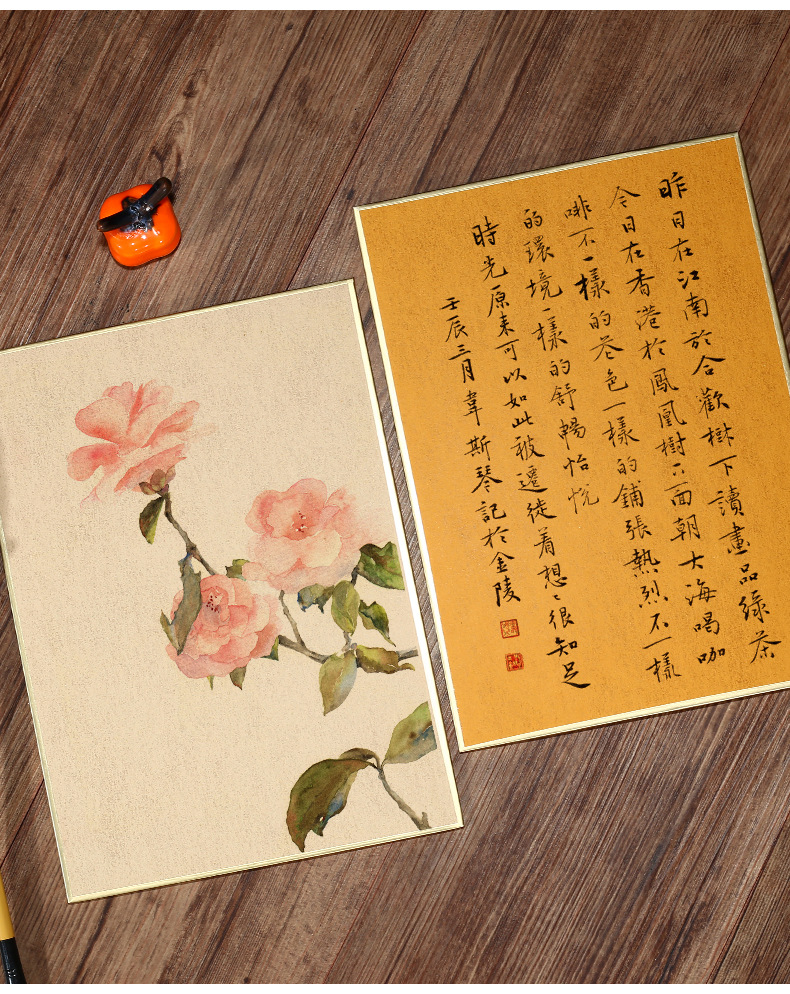 昨日在江南於合歡樹下讀畫品綠茶
今日在香港於鳳凰樹下面朝大海喝咖
啡不一樣的花色一樣的鋪張熱烈不一樣
的環境一樣的舒暢怡悅
時光原来可以如此被遷徒着想想很知足
壬辰三月韋斯琴記於金陵